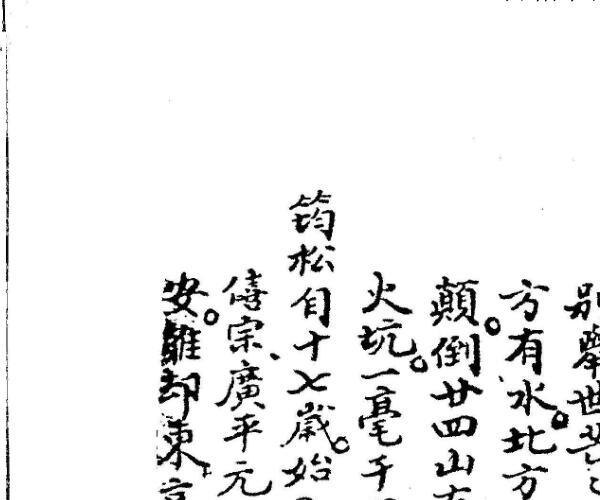 別舉世茫
方有水。北方
顛。倒廿四山
火坑。一毫千
筠松自十七歲。始
僖宗、廣平元
安。離却東京